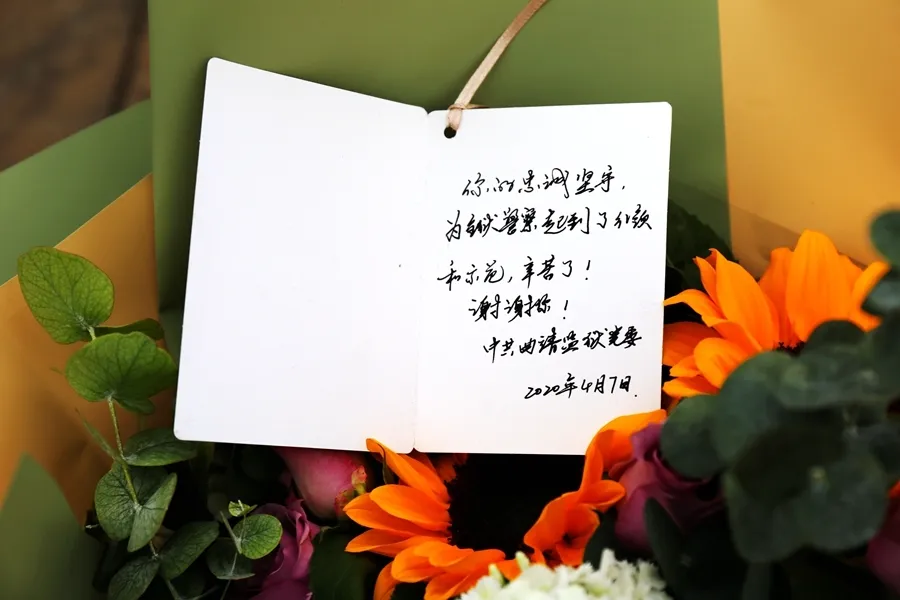 你的忠诚坚守,
为全狱警察起到了引领
和示范,辛苦了!
谢谢你!
中共曲靖监狱党委
2020年4月7日.